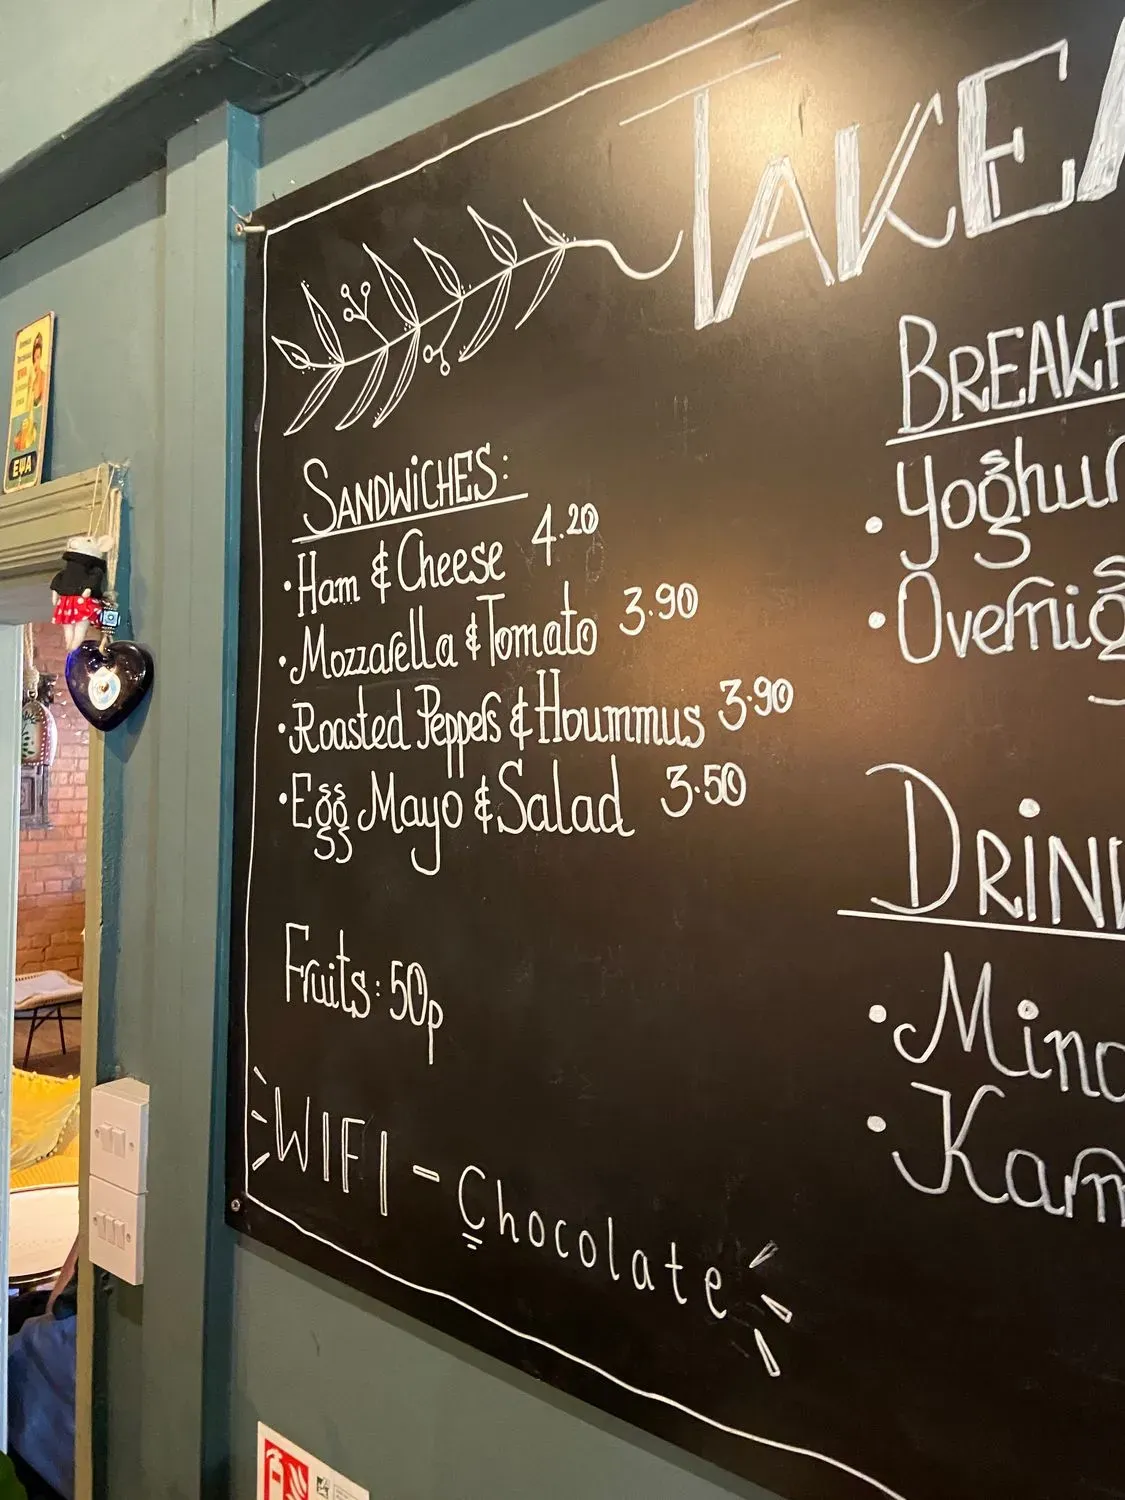 TAKEA
SANDWiCHES:
• Ham & Cheese 4.20
• Mozzarella & Tomato 3.90
• Roasted Peppers & Hoummus 3.90
• Egg Mayo & Salad 3.50
Fruits: 50p
WIFI - Chocolate
BREAKF
• Yoghur
• Overnig
DRINK
• Mino
• Kam
EWA